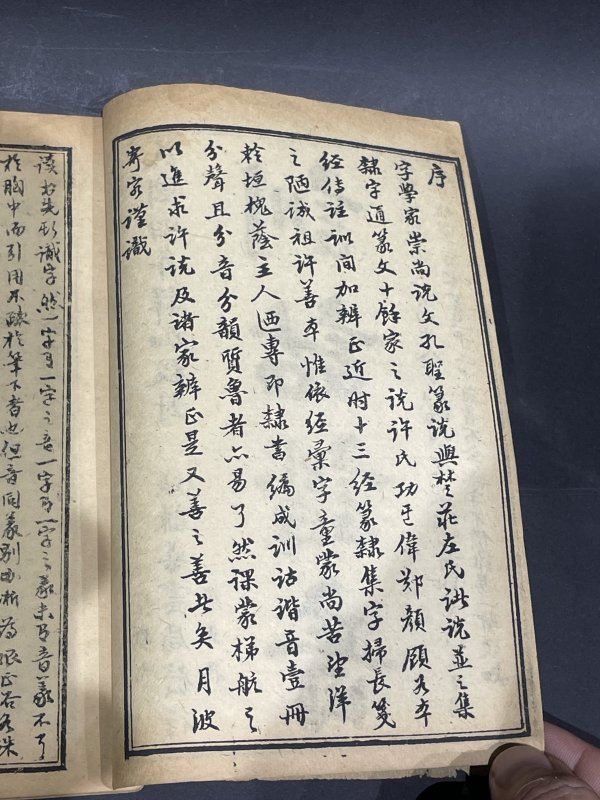 序
字學家崇尚說文孔聖篆說與楚莊左氏說並之集
隸字通篆文十餘家之說許氏功甚偉鄭顔顧各本
經傳註訓間加辨正近时十三經篆隸集字掃長箋
之陋誠祖許善本惟依經彙字童蒙尚苦望洋
於垣槐蔭主人迺專即隸書編成訓詁諧音壹冊
分聲且分音分韻質魯者亦易了然課蒙梯航之
以進求許說及諸家辨正是又善之善者矣月波
寄客謹識
讀书先須識字然一字有一字之音一字有一字之義未有音義不了
於胸中而引用不於筆下者也但音同義別